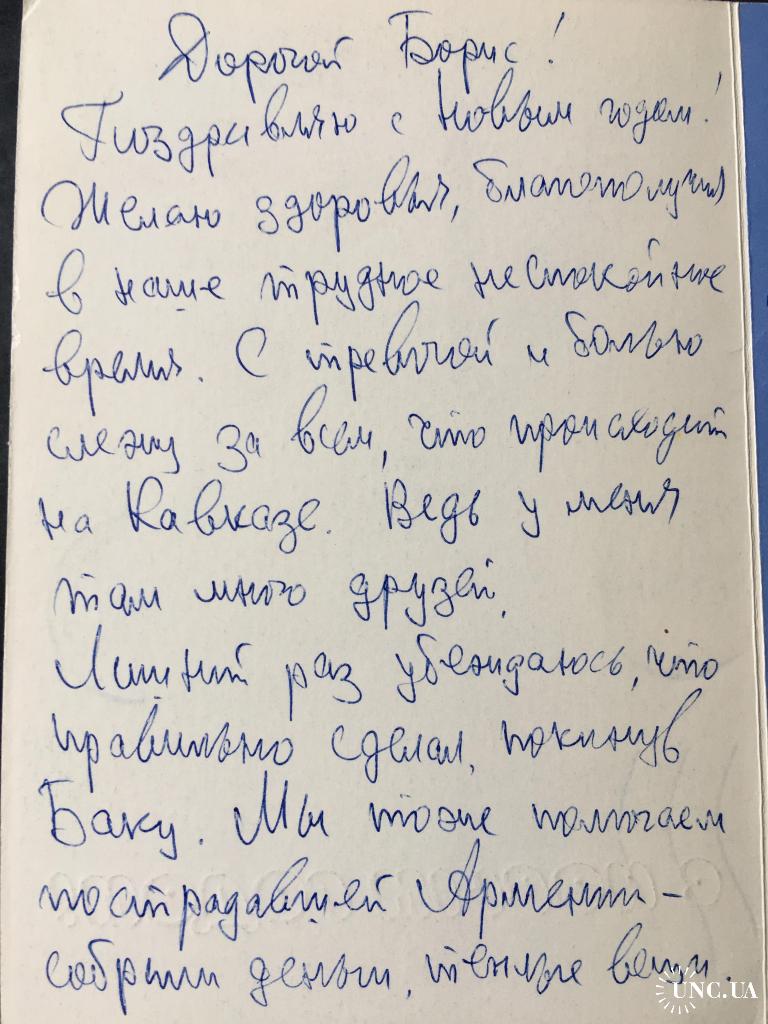 Дорогой Борис!
Поздравляю с Новым годом!
Желаю здоровья, благополучия
в наше трудное неспокойное
время. С тревогой и болью
слежу за всем, что происходит
на Кавказе. Ведь у меня
там много друзей.
Лишний раз убеждаюсь, что
правильно сделал, покинув
Баку. Мы тоже помогаем
пострадавшей Армении –
собрали деньги, теплые вещи.
UNC.UA